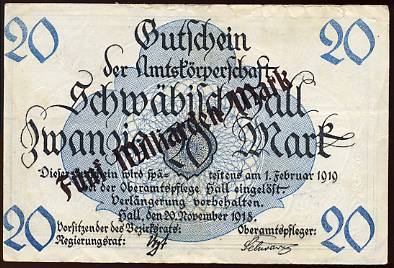 20 Gutschein 20
der Amtskörperschaft
Schwäbisch Hall
Fünf Milliarden Mark
Zwanzig 20 Mark
Dieser Gutschein wird spä-testens am 1. Februar 1919
bei der Oberamtspflege Hall eingelöst.
Verlängerung vorbehalten.
Hall, den 20. November 1918.
Vorsitzender des Bezirksrats: Oberamtspfleger:
20 Regierungsrat: 20